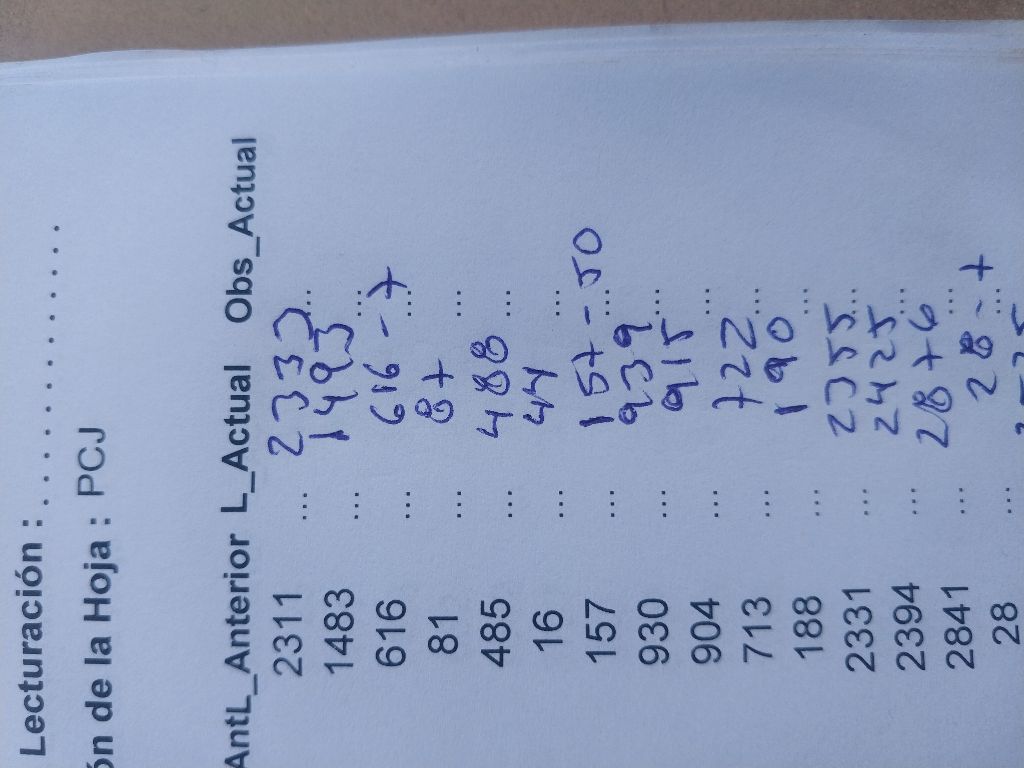 Lecturación : . . . . . . . . . . . . . . . .
ón de la Hoja : PCJ
AntL_Anterior L_Actual Obs_Actual
2311 ... 2333 ...
1483 ... 1493 ...
616 ... 616 - 7 ...
81 ... 87 ...
485 ... 488 ...
16 ... 44 ...
157 ... 157 - 50 ...
930 ... 939 ...
904 ... 915 ...
713 ... 722 ...
188 ... 190 ...
2331 ... 2355 ...
2394 ... 2425 ...
2841 ... 2876 ...
28 ... 28 - 7 ...